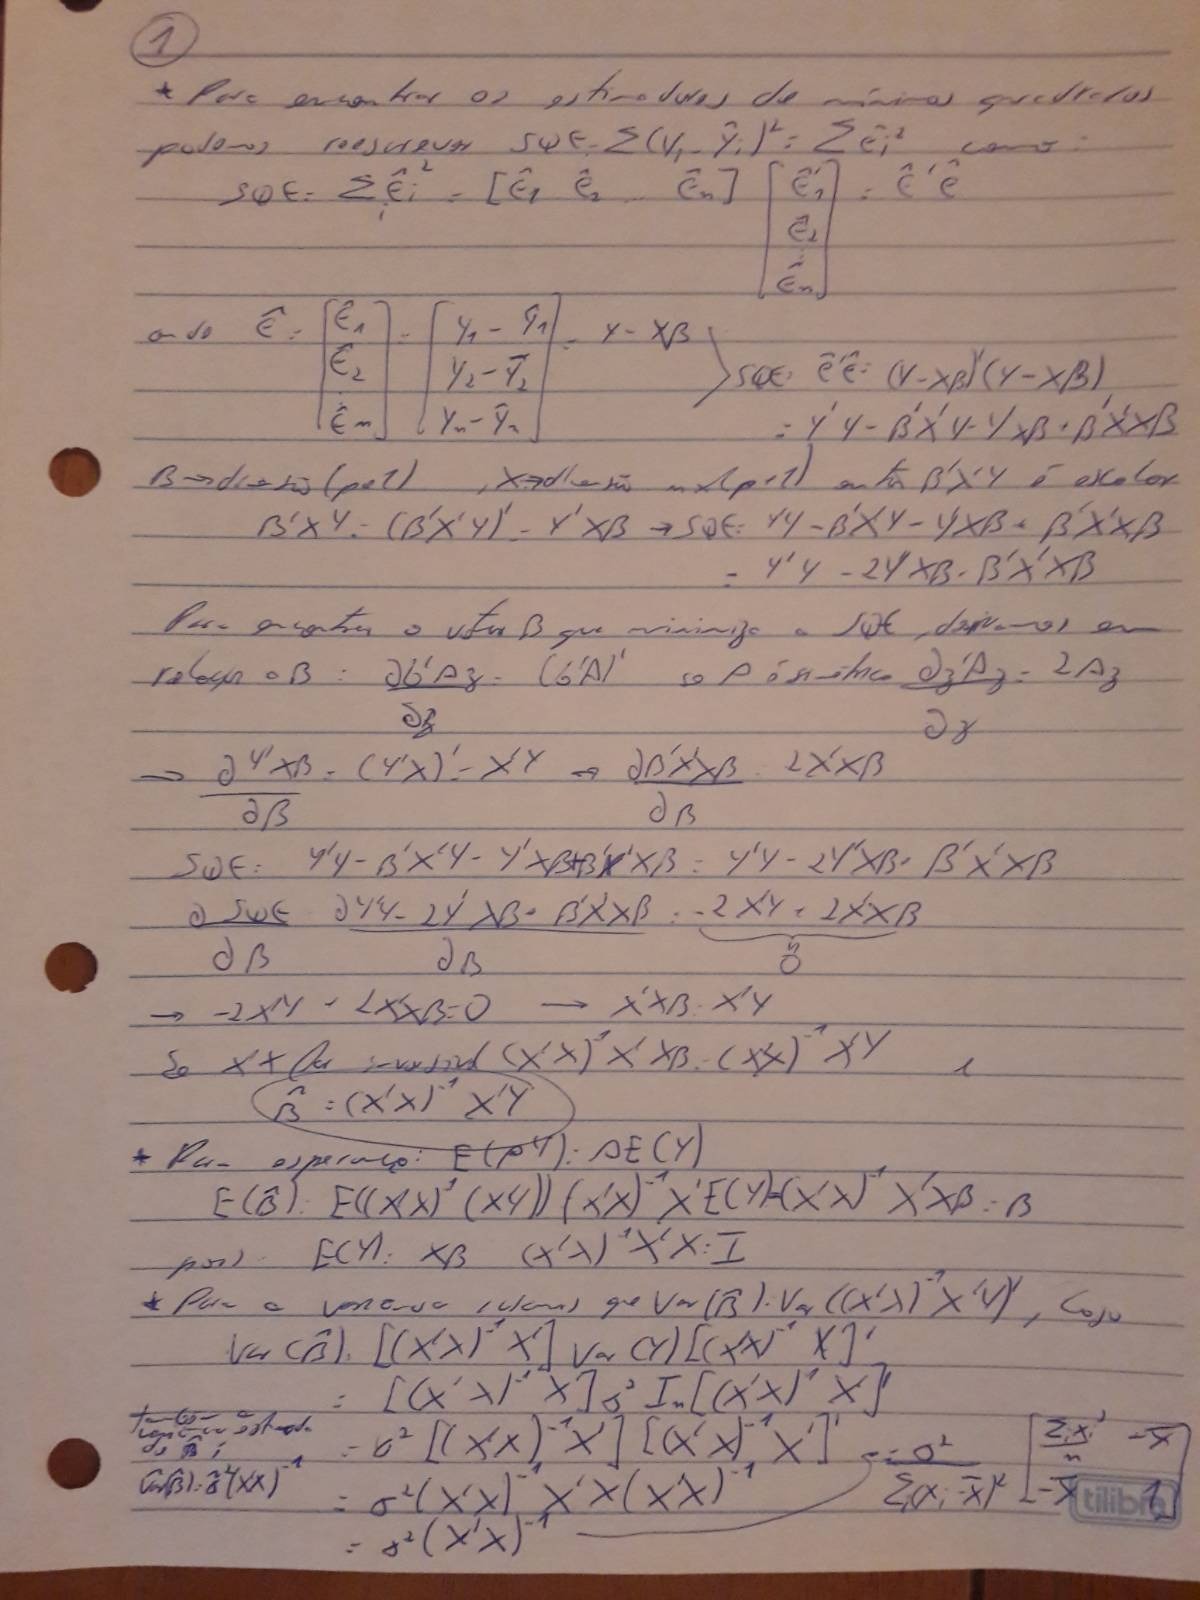 1
* Para encontrar os estimadores de mínimos quadrados
podemos reescrever SQE = Σ(Yi - Ŷi)² = Σ ε̂i² como:
SQE = Σi ε̂i² = [ε̂1 ε̂2 ... ε̂n] [ε̂1 ε̂2 ⋮ ε̂n] = ε̂'ε̂
onde ε̂ = [ε̂1 ε̂2 ⋮ ε̂n] = [Y1 - Ŷ1 Y2 - Ŷ2 Yn - Ŷn] = Y - Xβ
SQE = ε̂'ε̂ = (Y-Xβ)'(Y-Xβ)
= Y'Y - β'X'Y - Y'Xβ + β'X'Xβ
β → dimensão (p+1), X → dimensão nx(p+1) então β'X'Y é escalar
β'X'Y = (β'X'Y)' = Y'Xβ → SQE = Y'Y - β'X'Y - Y'Xβ + β'X'Xβ
= Y'Y - 2Y'Xβ + β'X'Xβ
Para encontrar o vetor β que minimiza a SQE, derivamos em
relação a β: ∂b'Az/∂z = (b'A)' se A é simétrica ∂z'Az/∂z = 2Az
→ ∂Y'Xβ/∂β = (Y'X)' = X'Y → ∂β'X'Xβ/∂β = 2X'Xβ
SQE = Y'Y - β'X'Y - Y'Xβ + β'X'Xβ = Y'Y - 2Y'Xβ + β'X'Xβ
∂SQE/∂β = ∂Y'Y - 2Y'Xβ + β'X'Xβ/∂β = -2X'Y + 2X'Xβ
= 0
→ -2X'Y + 2X'Xβ = 0 → X'Xβ = X'Y
Se X'X for inversível (X'X)⁻¹X'Xβ = (X'X)⁻¹X'Y
β̂ = (X'X)⁻¹X'Y
* Para esperança: E(AY) = AE(Y)
E(β̂) = E((X'X)⁻¹(X'Y)) = (X'X)⁻¹X'E(Y) = (X'X)⁻¹X'Xβ = β
pois E(Y) = Xβ (X'X)⁻¹X'X = I
* Para a variância que Var(β̂) = Var((X'X)⁻¹X'Y), Logo
Var(β̂) = [(X'X)⁻¹X'] Var(Y) [(X'X)⁻¹X']'
= [(X'X)⁻¹X'] σ² In [(X'X)⁻¹X']'
= σ² [(X'X)⁻¹X'] [(X'X)⁻¹X']'
= σ²(X'X)⁻¹X'X(X'X)⁻¹
= σ²(X'X)⁻¹
= σ²/Σi(xi - x̄)² [Σixi²/n -x̄ -x̄ 1]
de β̂ é
V̂ar(β̂) = σ̂²(X'X)⁻¹
tilibra